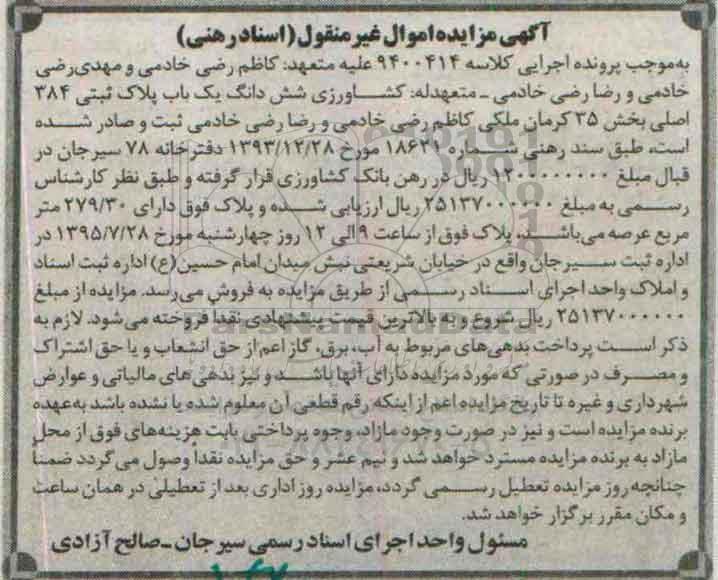 آگهی مزایده اموال غیر منقول (اسناد رهنی)
به‌موجب پرونده اجرایی کلاسه ۹۴۰۰۴۱۴ علیه متعهد: کاظم رضی خادمی و مهدی‌رضی
خادمی و رضا رضی خادمی ـ متعهدله: کشاورزی شش دانگ یک باب پلاک ثبتی ۳۸۴
اصلی بخش ۳۵ کرمان ملکی کاظم رضی خادمی و رضا رضی خادمی ثبت و صادر شده
است، طبق سند رهنی شماره ۱۸۶۲۱ مورخ ۱۳۹۳/۱۲/۲۸ دفترخانه ۷۸ سیرجان در
قبال مبلغ ۱۲۰۰۰۰۰۰۰۰ ریال در رهن بانک کشاورزی قرار گرفته و طبق نظر کارشناس
رسمی به مبلغ ۲۵۱۳۷۰۰۰۰۰۰ ریال ارزیابی شده و پلاک فوق دارای ۲۷۹/۳۰ متر
مربع عرصه می‌باشد، پلاک فوق از ساعت ۹ الی ۱۲ روز چهارشنبه مورخ ۱۳۹۵/۷/۲۸ در
اداره ثبت سیرجان واقع در خیابان شریعتی نبش میدان امام حسین(ع) اداره ثبت اسناد
و املاک واحد اجرای اسناد رسمی از طریق مزایده به فروش می‌رسد. مزایده از مبلغ
۲۵۱۳۷۰۰۰۰۰۰ ریال شروع و به بالاترین قیمت پیشنهادی نقداً فروخته می‌شود. لازم به
ذکر است پرداخت بدهی‌های مربوط به آب، برق، گاز اعم از حق انشعاب و یا حق اشتراک
و مصرف در صورتی که مورد مزایده دارای آنها باشد و نیز بدهی های مالیاتی و عوارض
شهرداری و غیره تا تاریخ مزایده اعم از اینکه رقم قطعی آن معلوم شده یا نشده باشد به‌عهده
برنده مزایده است و نیز در صورت وجود مازاد، وجوه پرداختی بابت هزینه‌های فوق از محل
مازاد به برنده مزایده مسترد خواهد شد و نیم عشر و حق مزایده نقداً وصول می‌گردد ضمناً
چنانچه روز مزایده تعطیل رسمی گردد، مزایده روز اداری بعد از تعطیلی در همان ساعت
و مکان مقرر برگزار خواهد شد.
مسئول واحد اجرای اسناد رسمی سیرجان ـ صالح آزادی